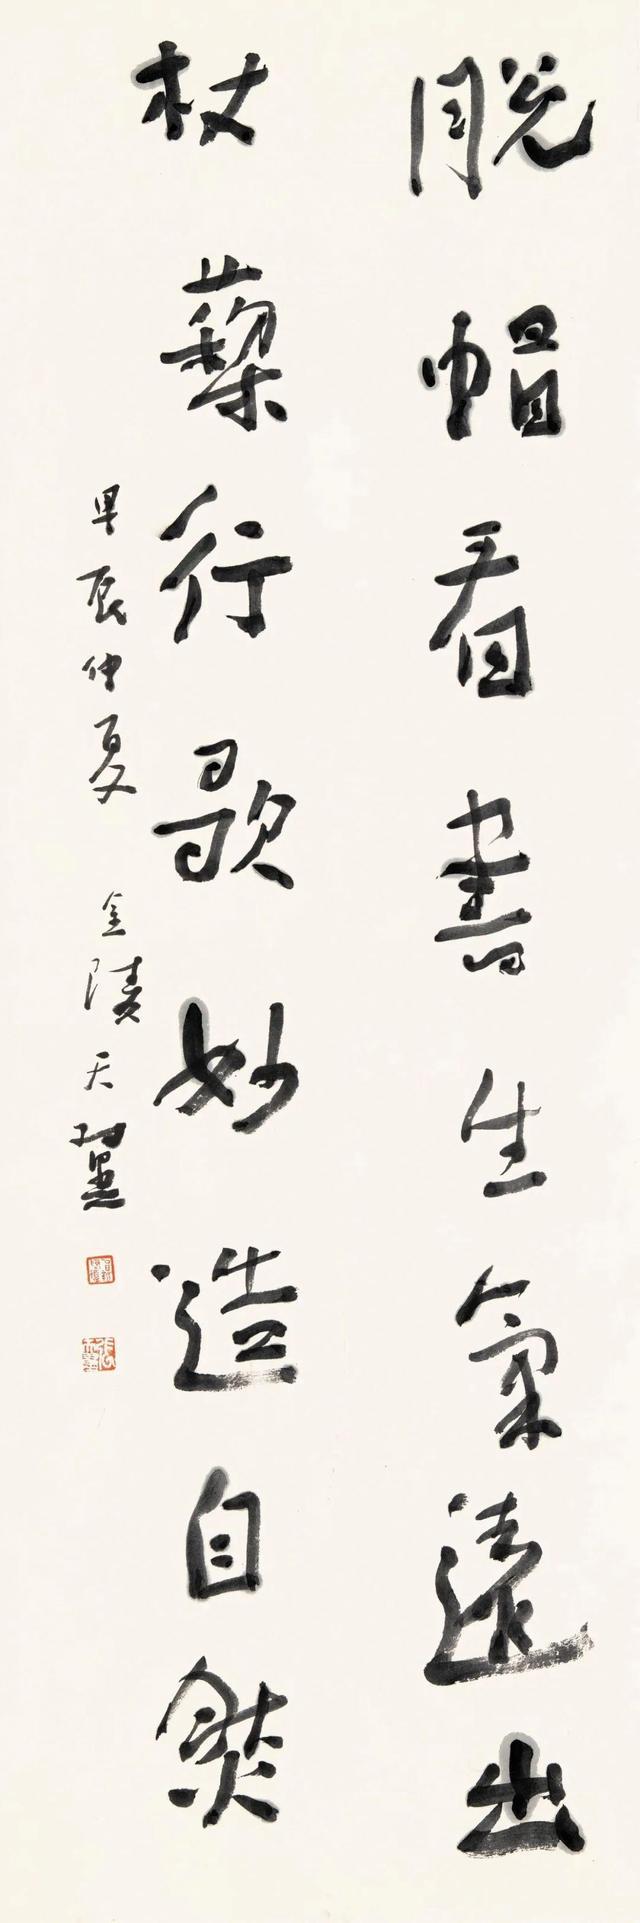 脱帽看書生氣遠出
杖藜行歌妙造自然
甲辰仲夏 金陵天翼